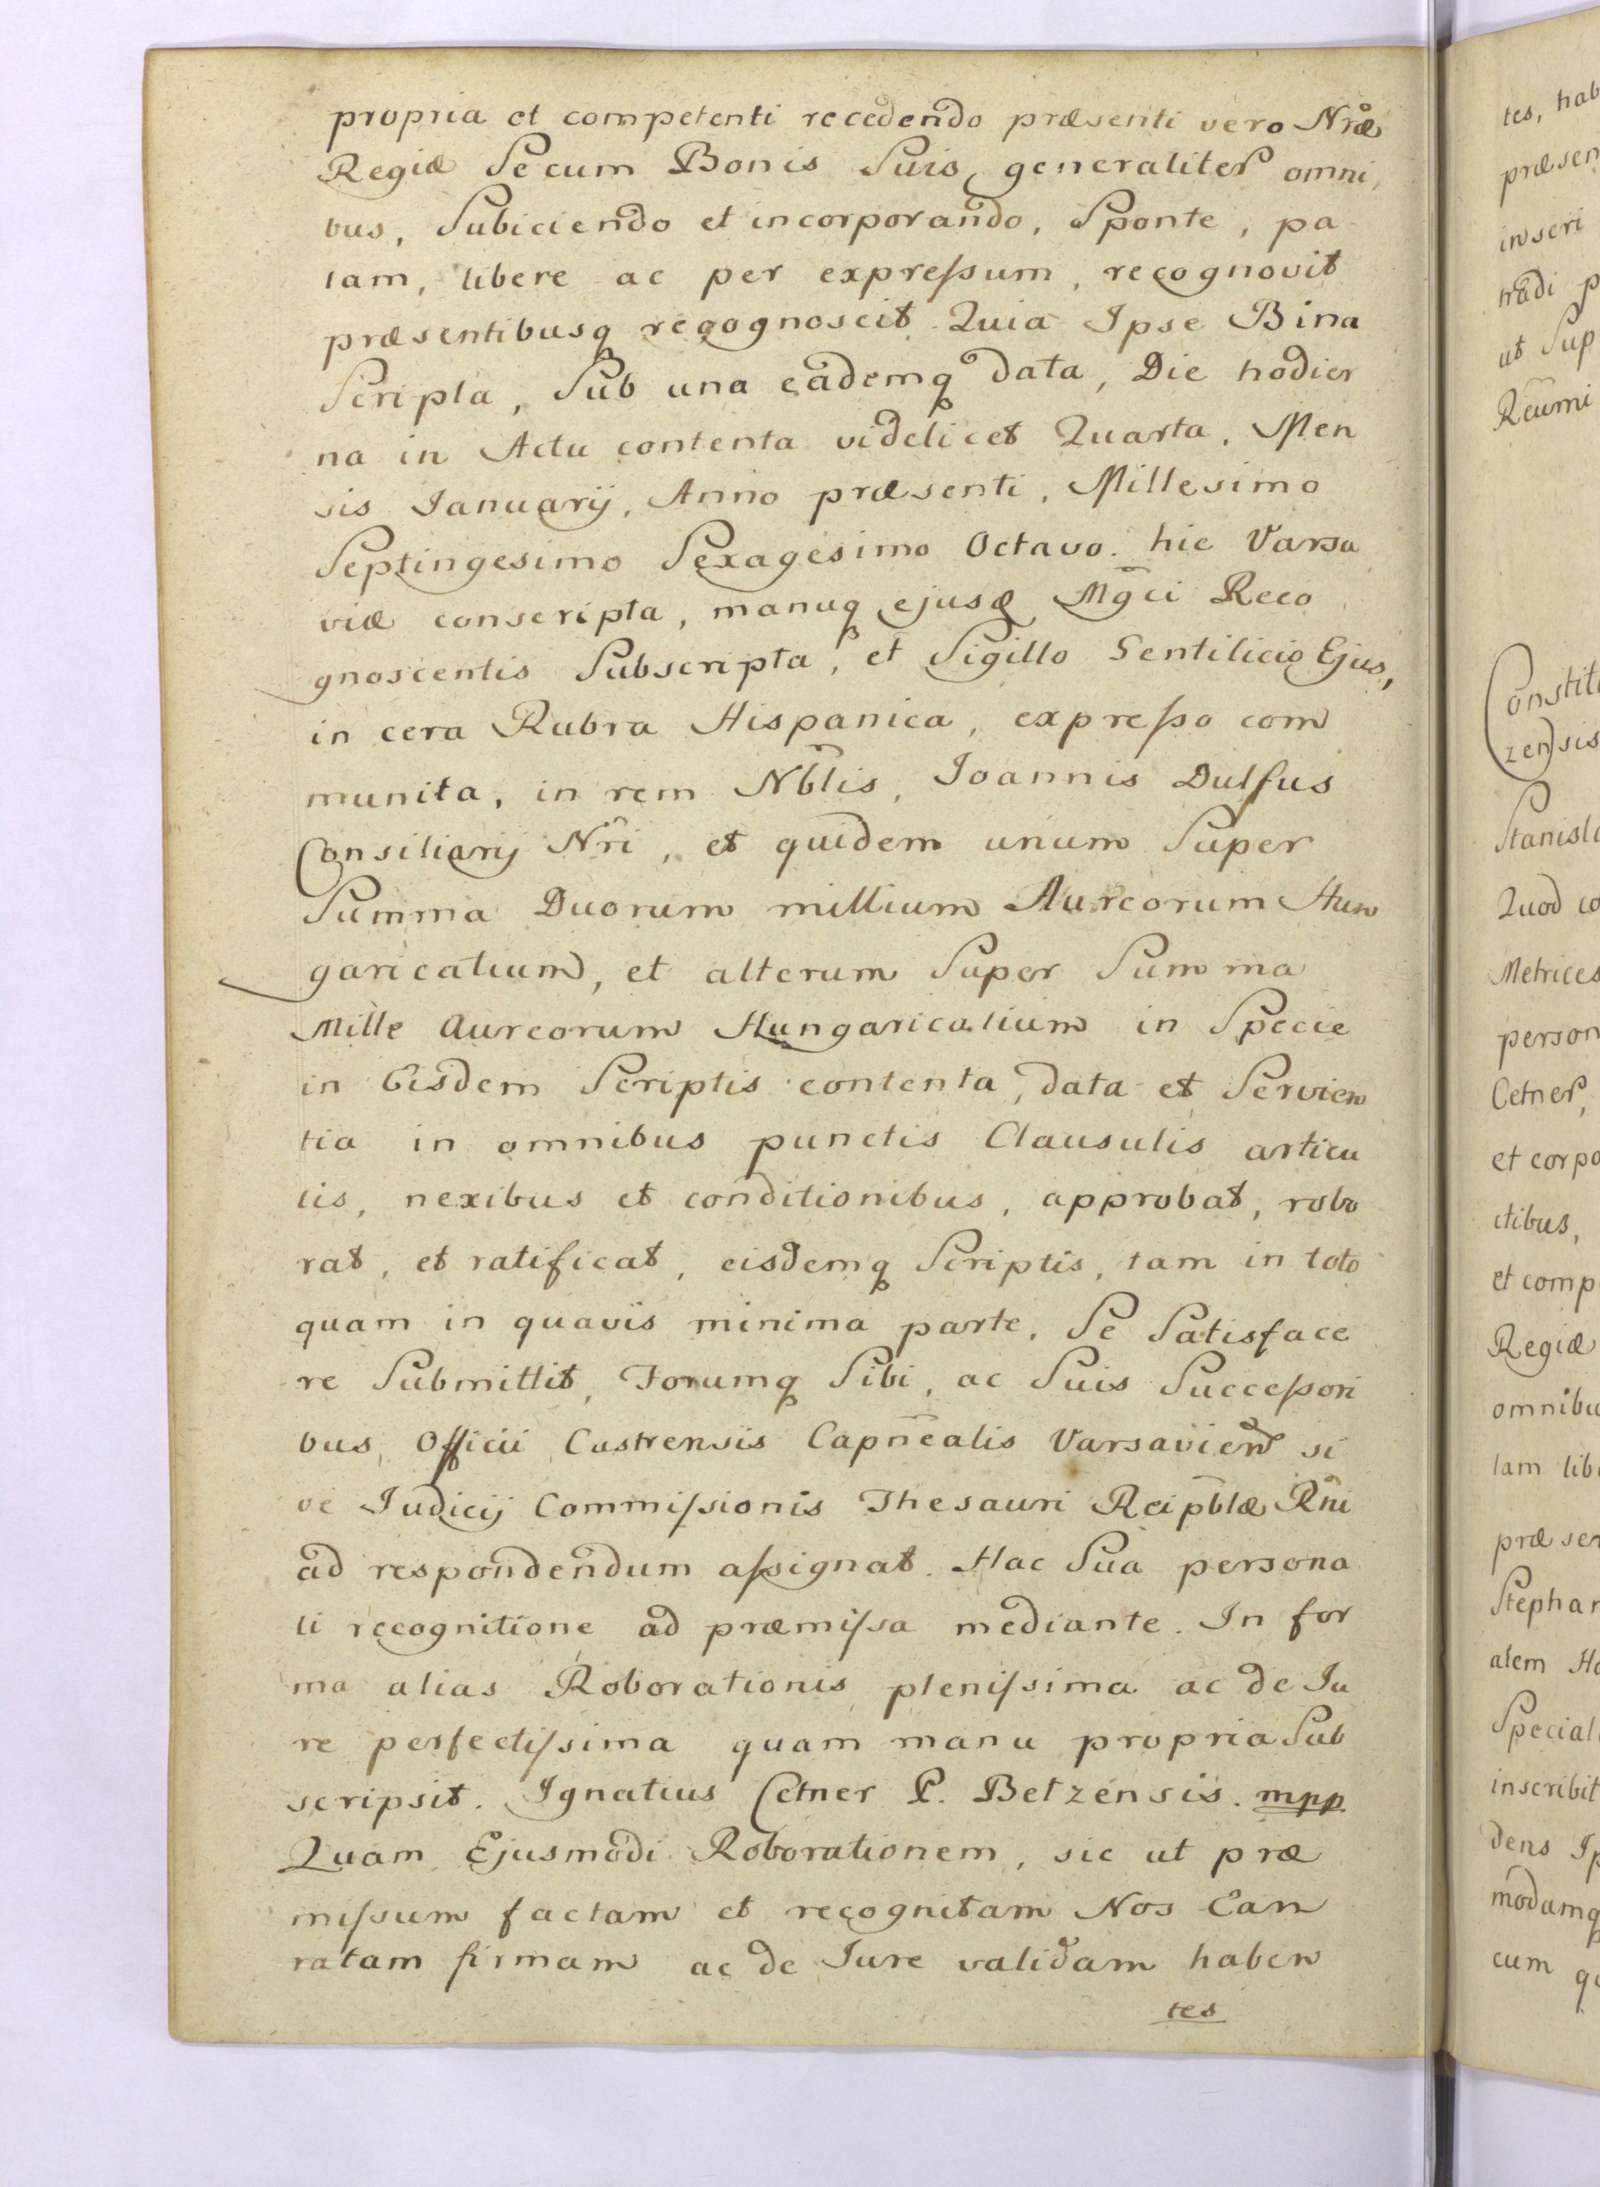 propria et competenti recedendo præsenti vero Nræ
Regiæ Se cum Bonis Suis, generaliter omni
bus, Subiciendo et incorporando, Sponte, pa
lam, libere ac per expressum, recognovit
præsentibusq recognoscit. Quia Ipse Bina
Scripta, Sub una eademq data, Die hodier
na in Actu contenta videlicet Quarta, Men
sis Ianuarij, Anno præsenti, Millesimo
Septingesimo Sexagesimo Octavo. hic Varsa
viæ conscripta, manuq ejusd Mgci Reco
gnoscentis Subscripta, et Sigillo Gentilicio Ejus,
in cera Rubra Hispanica, expresso com
munita, in rem Nblis, Ioannis Dulfus
Consiliarij Nri, et quidem unum Super
Summa Duorum millium Aureorum Hun
garicalium, et alterum Super Summa
Mille Aureorum Hungaricalium in Specie
in Eisdem Scriptis contenta, data et Servien
tia in omnibus punctis Clausulis articu
lis, nexibus et conditionibus, approbat, robo
rat, et ratificat, eisdemq Scriptis, tam in toto
quam in quavis minima parte, Se Satisface
re Submittit, Forumq Sibi, ac Suis Successori
bus, Officii Castrensis Capnealis Varsavien si
ve Iudicij Commissionis Thesauri Reipblæ Rni
ad respondendum assignat. Hac Sua persona
li recognitione ad præmissa mediante. In for
ma alias Roborationis plenissima ac de Iu
re perfectissima quam manu propria Sub
scripsit. Ignatius Cetner P. Betzensis. mpp
Quam Ejusmodi Roborationem, sic ut præ
missum factam et recognitam Nos Ean
ratam firmam ac de Iure validam haben
tes
tes, hab
præsen
inscri
tradi p
ut Sup
Reumi
Constit
zensis
Stanisla
Quod co
Metrices
person
Cetner,
et corpo
ctibus,
et comp
Regiæ
omnibu
lam lib
præsen
Stephan
alem
Special
inscribit
dens Ip
modamq
cum